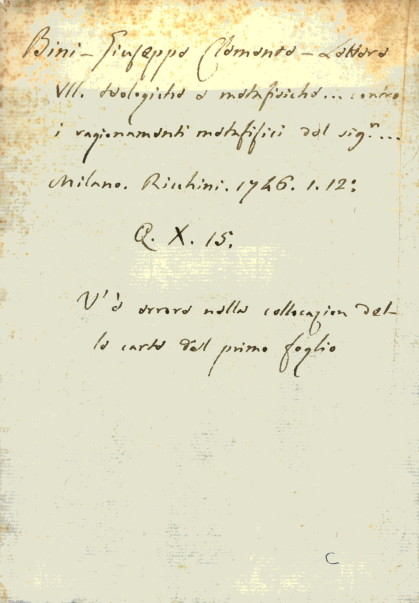 Bini - Giuseppe Clemente - Lettere
VII. teologiche e metafisiche... contro
i ragionamenti metafisici del sigr...
Milano. Richini. 1746. 1. 12:
Q. X. 15.
V'è errore nella collocazion del-
le carte del primo foglio
C